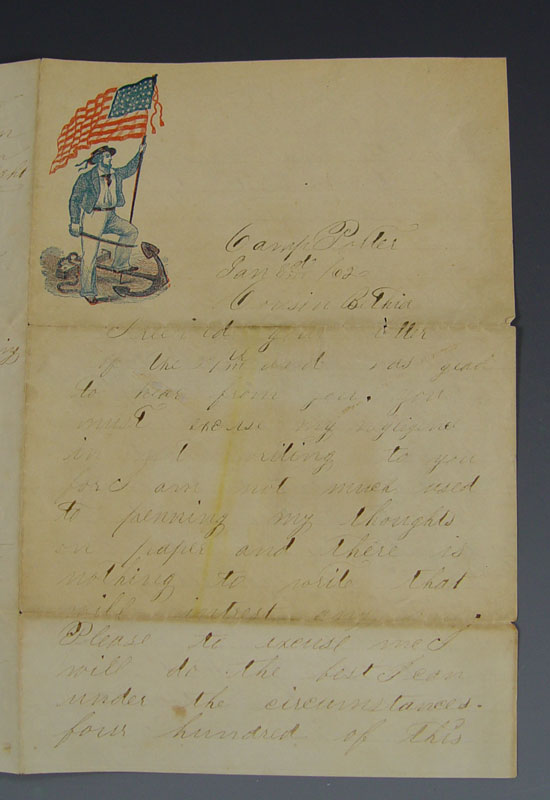 Camp Potter
Jan 62
Cousin Bethia
I recived your letter
of the and was glad
to hear from you. you
must excuse my negligence
in not writing to you
for I am not much used
to penning my thoughts
on paper and there is
nothing to write that
will intrest any
Please to excuse me I
will do the best I can
under the circumstances.
four hundred of this